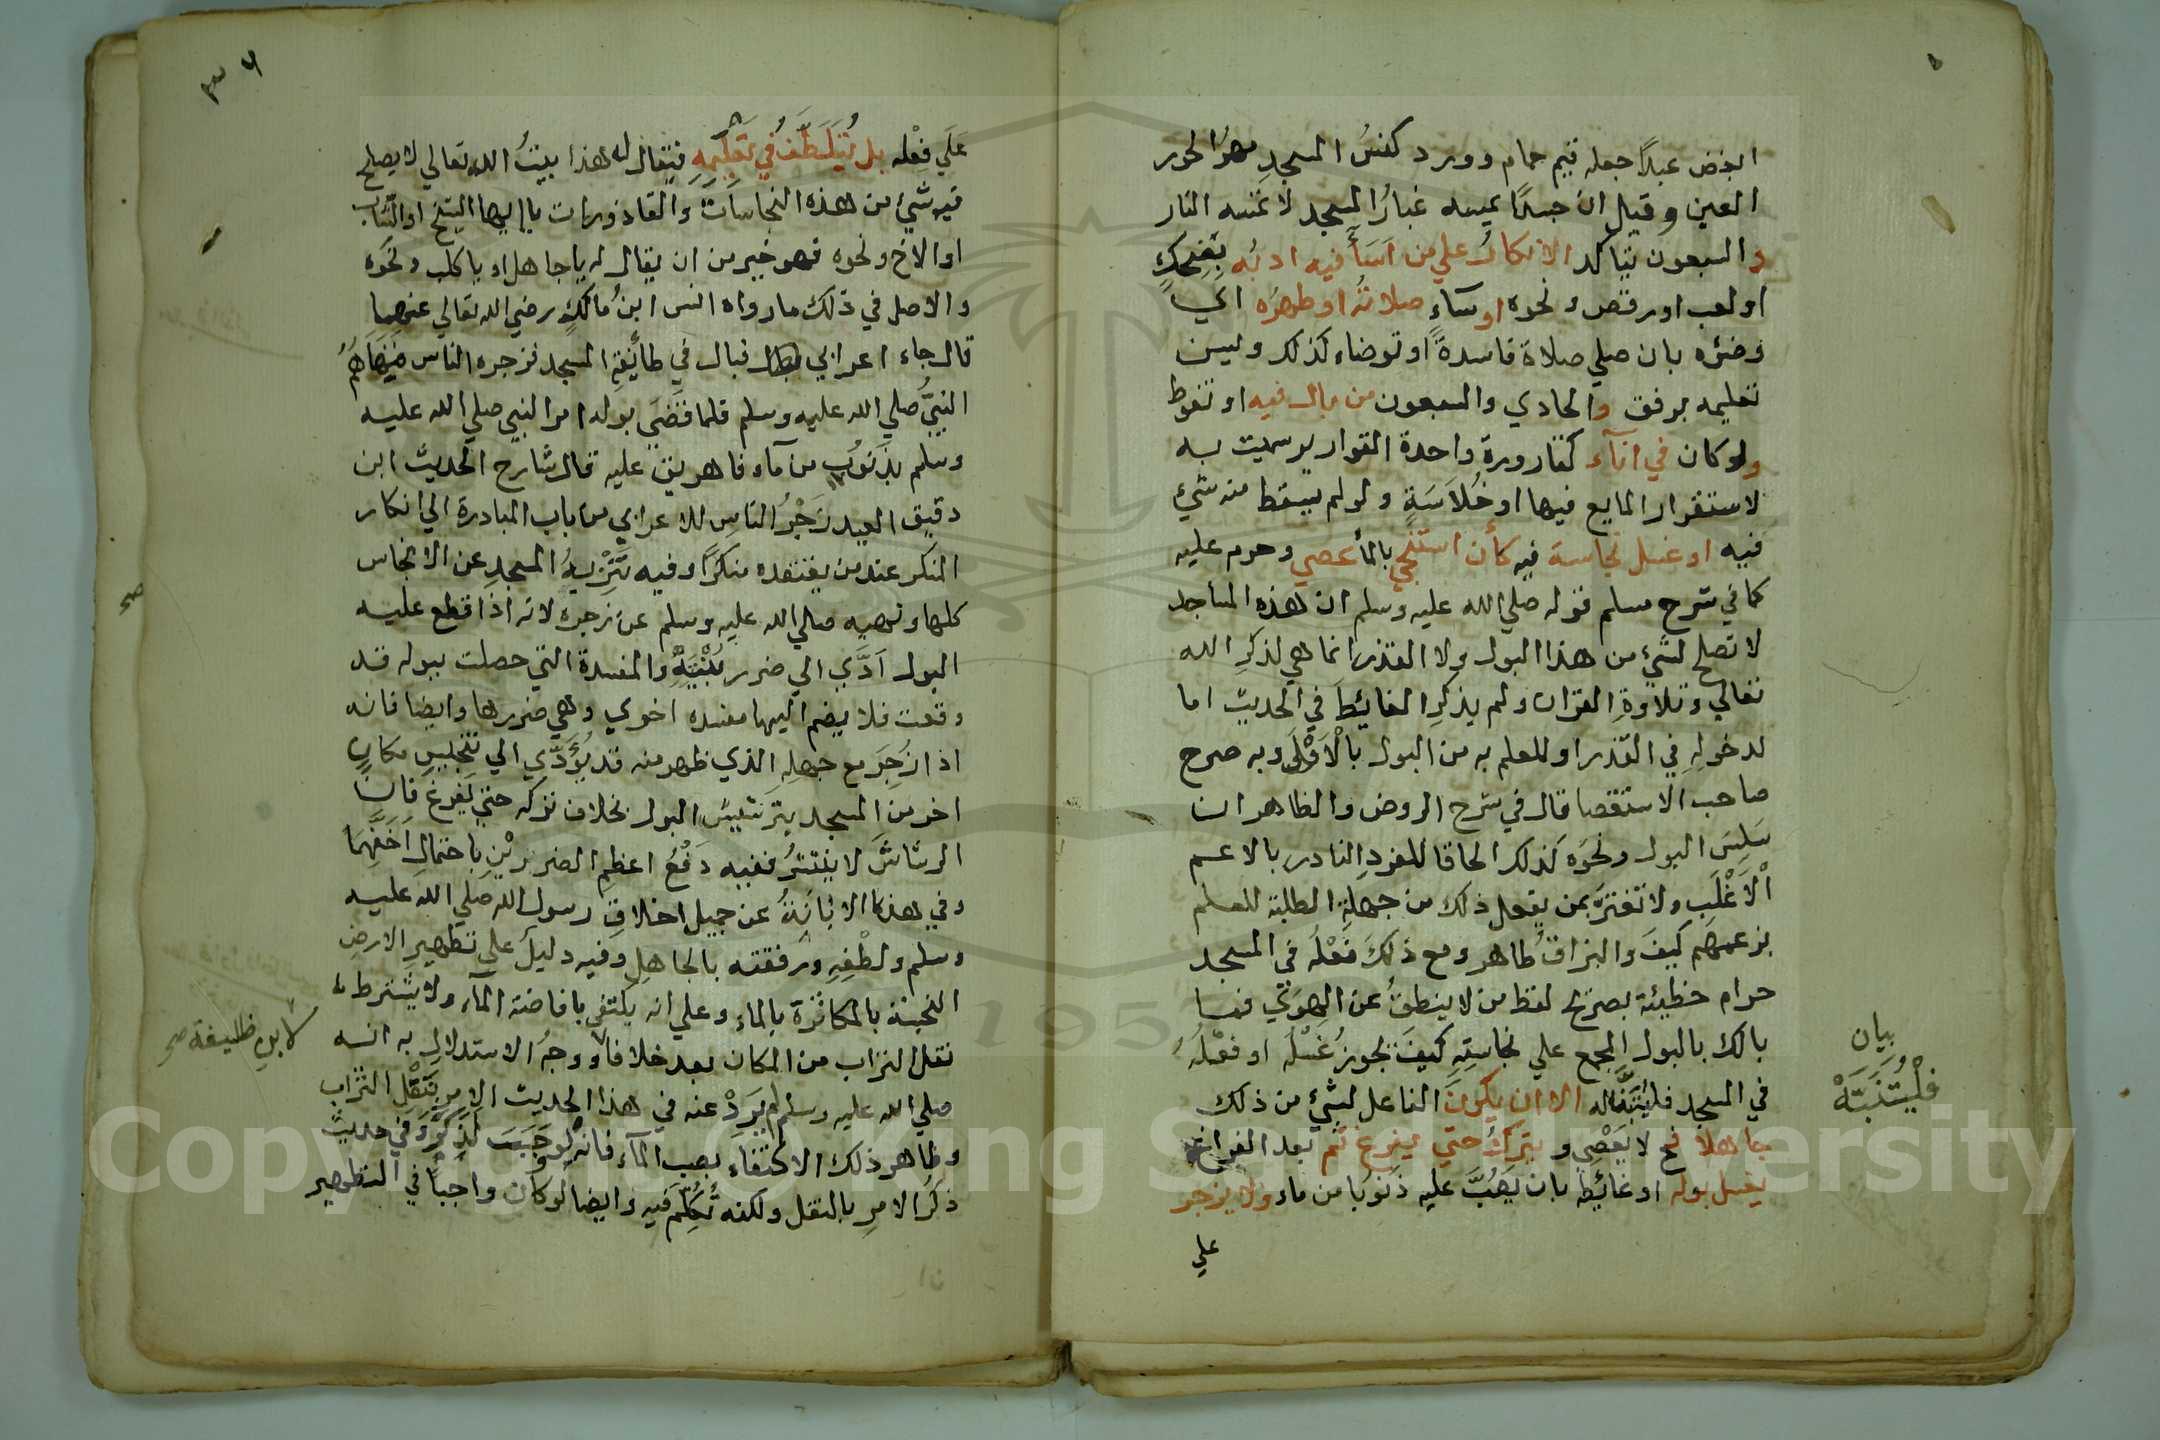 ابغض عبدًا جعله قيم حمام وورد كنسُ المسجدِ مهرُ الحور
العين وقيل ان جسدًا يمسه غبارُ المسجد لا تمسه النار
والسبعون يتاكد الانكارُ علي من اَسَاَٴ فيه ادبُه بِضِحْكٍ
او لعب او رقص ونحوه اوساءٍ صلاتُه او طهرُه اي
وضوٴه بان صلي صلاة فاسدةً او توضاء كذلك وليس
تعليمه برفق والحادي والسبعون من بال فيه او تغوط
ولو كان في انآء كقارورة واحدة القوارير سميت به
لاستقرار المايع فيها او خُلاَسَةٍ ولو لم يسقط منه شيٴ
فيه او غسل نجاسة فيه كأن استنجي بالمأ عصي وحرم عليه
كما في شرح مسلم قوله صلي الله عليه وسلم ان هذه المساجد
لا تصلح لشيٴ من هذا البول ولا القذر انما هي لذكرِ الله
تعالي وتلاوةِ القران ولم يذكرِ الغائِطَ في الحديث اما
لدخولِهِ في القذر او للعلم به من البول بالْاَوْلَي وبه صرح
صاحب الاستقصا قال في شرح الروض والظاهر ان
سَلِسَ البول ونحوَه كذلك الحاقا للفردِ النادر بالاعم
الْاَغْلَبِ ولا تغترَّ بمن يفعل ذلك من جهلةِ الطلبة للعلم
بزعمهم كيفَ والبزاقُ طاهر ومع ذلكَ فِعْلُه في المسجد
حرام خطيئة بصريح لفظ من لا ينطقُ عن الهوَي فما
بالك بالبول المجمع علي نجاستِهِ كيفَ تجوزُ غَسْلُه او فعْلُه
في المسجد فليُتَنَبَّه له الا ان يكونَ الفاعل لشيٴ من ذلك
جاهلا فح لا يَعْصِي ويتركُ حتي يفرغ ثم بعد الفراغ
يغسل بوله او غائِطه بان يَصُبَّ عليه ذَنوبًا من ماء ولا يزجر
علي
بيان
فلْيُتَنَبَّهْ
عَلَي فِعْلِه بل يُتَلَطَّفُ في تعليمِهِ فيقال له هذا بيتُ الله تعالي لا يصلح
فيه شيٴ من هذه النجاسَات والقاذورات يا ايها الشيخ او الشاب
او الاخ ونحوه فهو خير من ان يقال له يا جاهل او يا كلب ونحوَه
والاصل في ذلك ما رواه انس ابنُ مالكٍ رضي الله تعالي عنهما
قال جاء اعرابي فبال في طائِفةِ المسجد فزجره الناس فنهَاهُمُ
النبيُّ صلي الله عليه وسلم فلما قَضَي بوله امر النبي صلي الله عليه
وسلم بذَنوُب من مآء فاهريق عليه قال شارح الحديث ابن
دقيق العيد زَجْرُ الناسِ للاعرابي من باب المبادرة الي انكار
المنكر عند من يعتقده منكرًا وفيه تَنْزِيهُ المسجدِ عن الانجاس
كلها ونهيه صلي الله عليه وسلم عن زجره لانه اذا قطع عليه
البول اَدَّي الي ضرر بُنْيَتِهِ والمفسدة التي حصلت ببوله قد
وقعت فلا يضم اليها مفسده اخري وهي ضررها وايضا فانه
اذا زُجِرَ مع جهلِهِ الذي ظهر منه قد يُوَٴدّي الي تنجيس مكانٍ
اخر من المسجد بترشيش البول بخلاف تركه حتي يَفرغَ فان
الرشاشَ لا ينتشرُ ففيه دَفْعُ اعظمِ الضررَيْنِ باحتمال اَخَفِّهِمَا
وفي هذا الابانَةُ عن جميلِ اخلاقِ رسول الله صلي الله عليه
وسلم ولطْفِهِ ورفقته بالجاهل وفيه دليلٌ علي تطهيرِ الارضِ
النجسة بالمكاثرة بالماء وعلي انه يكتفي بافاضة المآء ولا يشترط
نقل التراب من المكان بعد خلافا ووجهُ الاستدلالِ به انه
صلي الله عليه وسلم لم يَرِدْ عنه في هذا الحديث الامر بنَقْلِ التراب
وظاهر ذلك الاكتفاء بصب المآء فانه لو وجَبَ لَذُكِرَ وورد في حديث
ذكرُ الامرِ بالنقل ولكنه تُكُلِّم فيه وايضا لو كان واجبًا في التطهير
لابي حنيفة صح
صح
Copyright © King Saud University
195